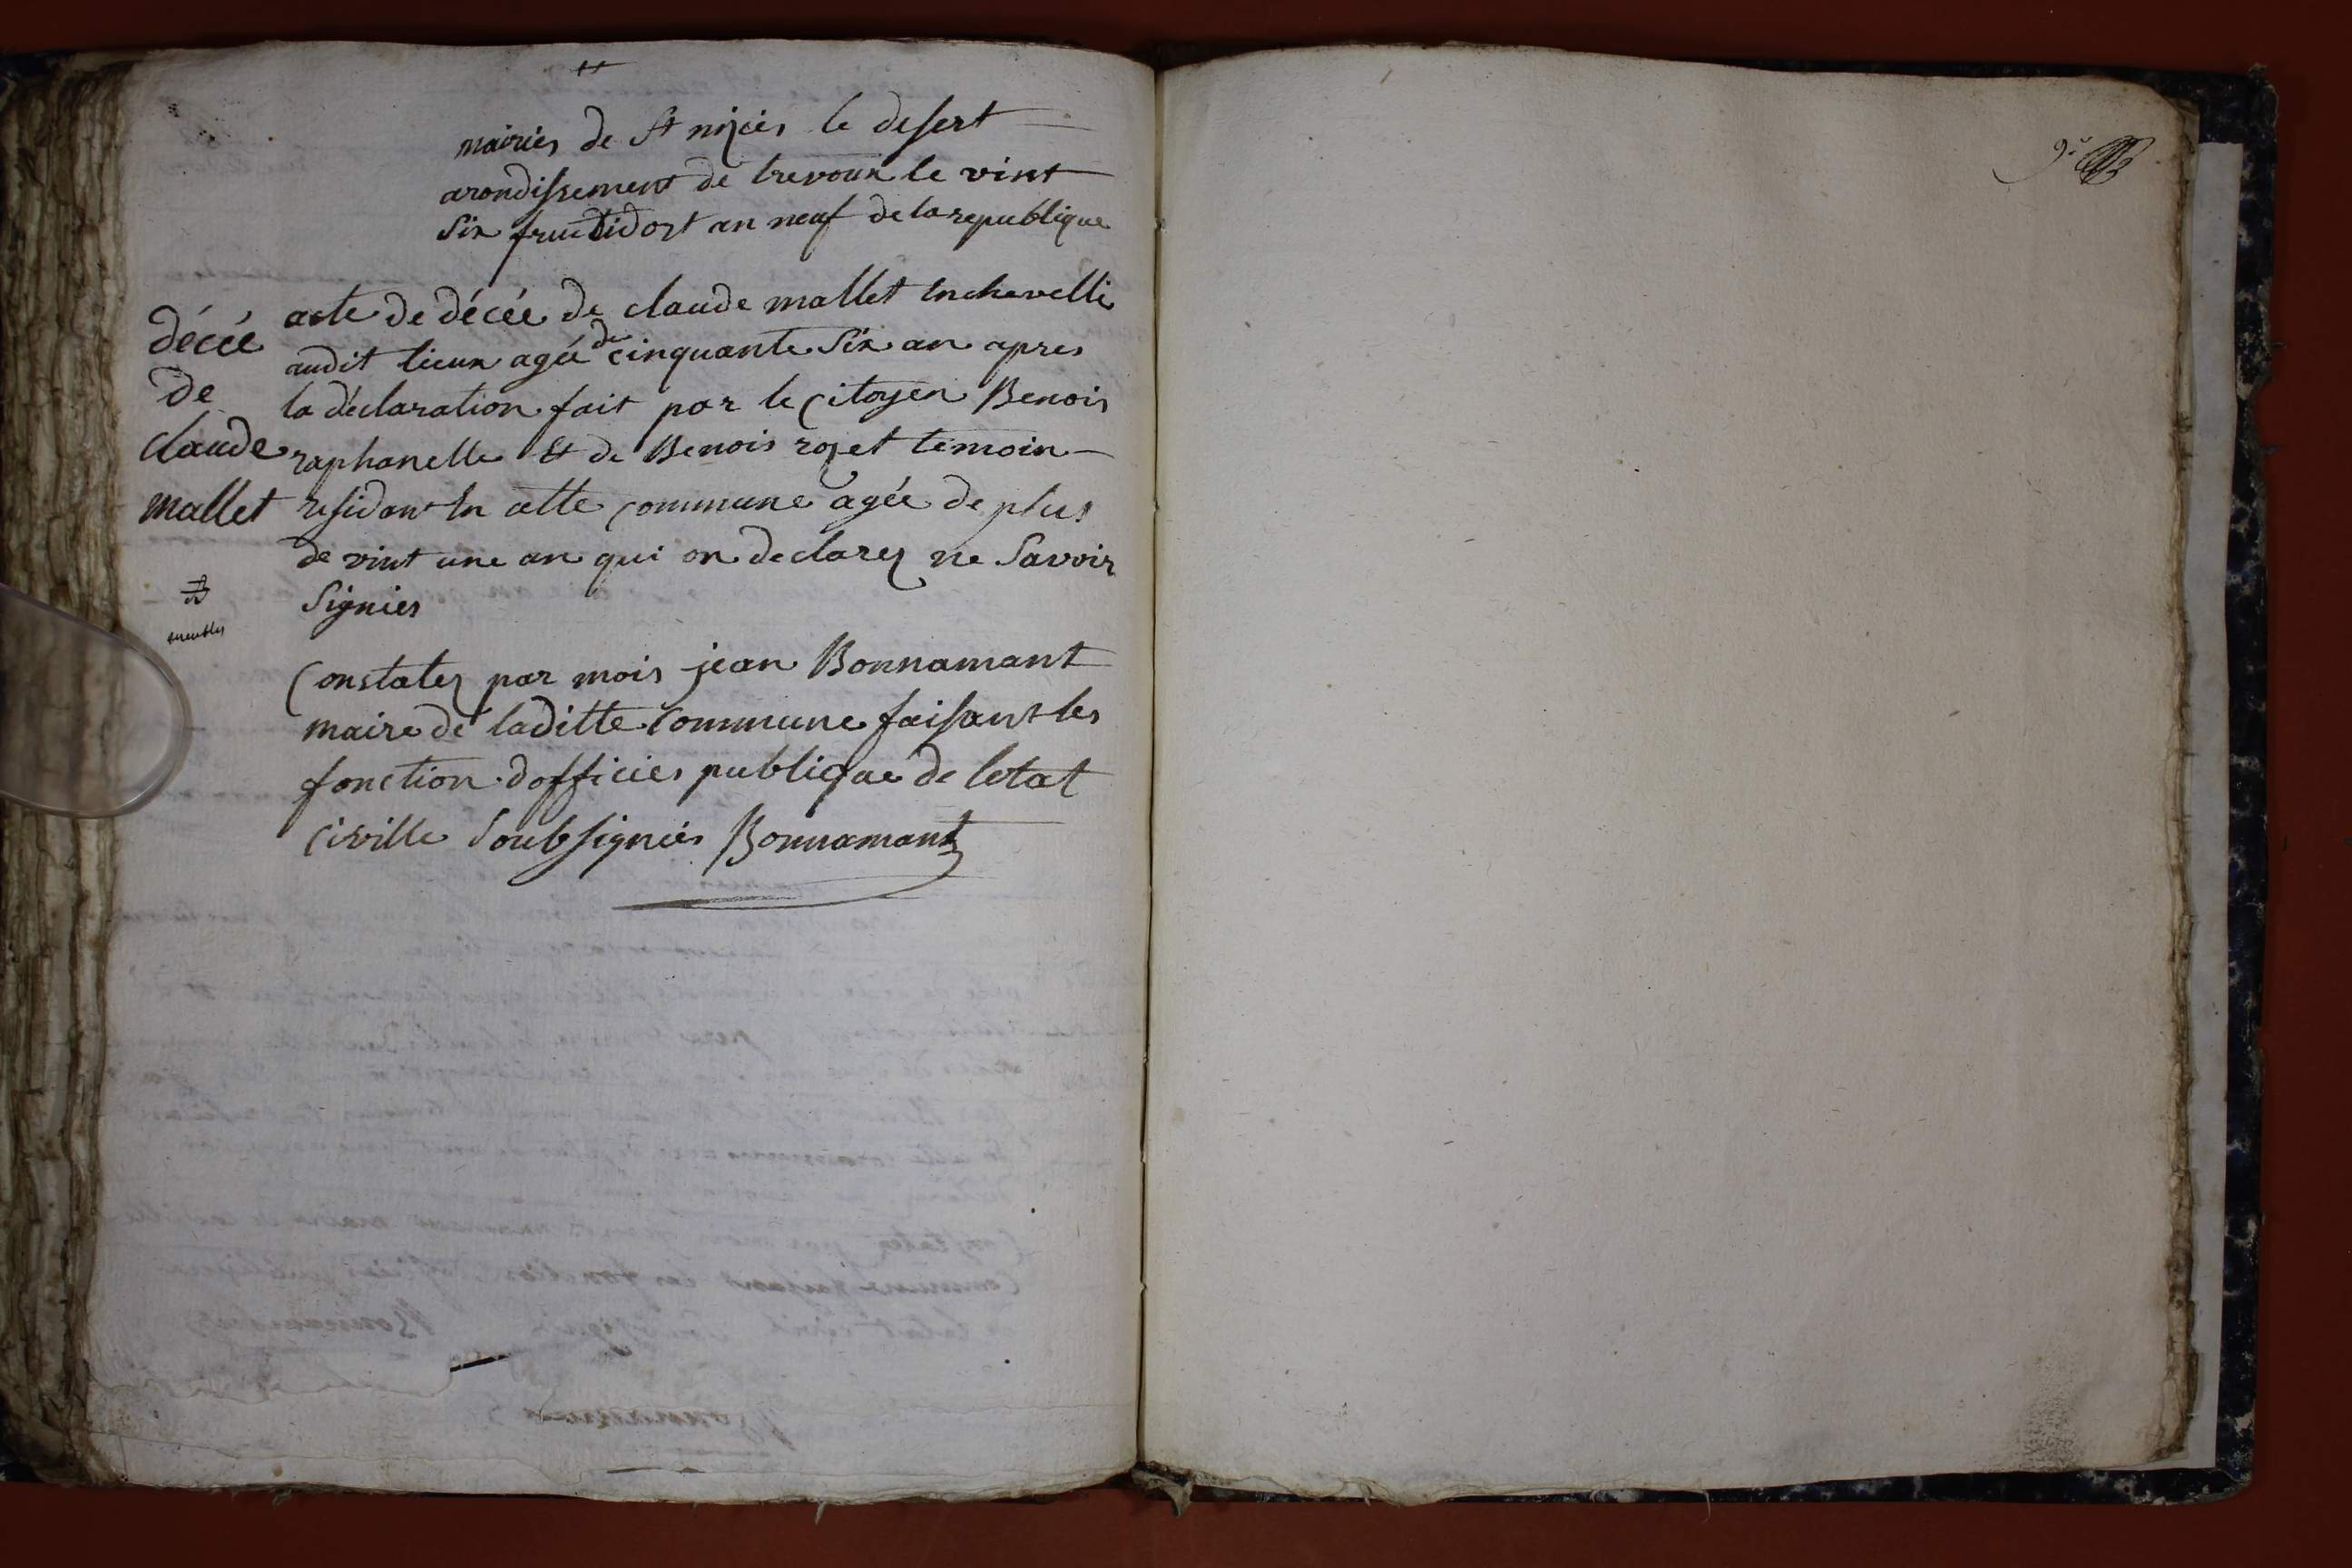 mairies de St nizies le desert
arondissement de trevoux le vint
six fructidort an neuf de la republique
décée
de
claude
mallet
acte de décée de claude mallet enchevelli
audit lieux agée de cinquante six an apres
la déclaration fait par le Citoyen Benois
raphanelle et de Benois rozet temoin
residant en cette commune agée de plus
de vint une an qui on declarez ne savoir
signies
Constatez par mois jean Bonnamant
maire de laditte Commune faisant les
fonction dofficies publique de letat
Civille soubsigniés Bonnamant
9e